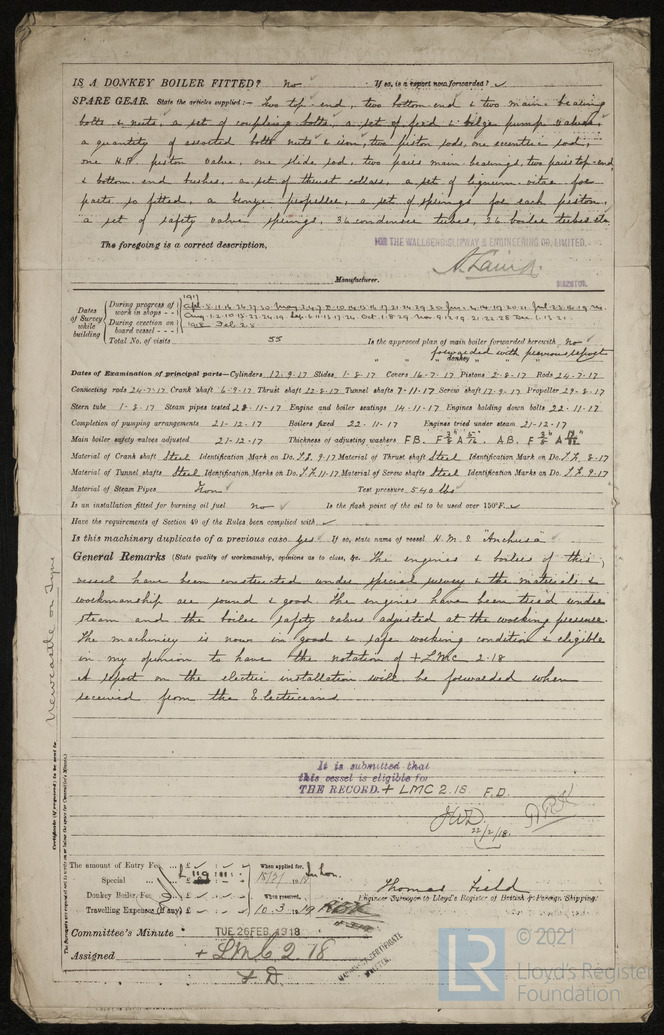 IS A DONKEY BOILER FITTED? No If so, is a report now forwarded?
SPARE GEAR. State the articles supplied:— Two top end, two bottom end & two main bearing
bolts & nuts, a set of coupling bolts, a set of feed & bilge pump valves,
a quantity of assorted bolts nuts & iron, two piston rods, one eccentric rod,
one H.P. piston valve, one slide rod, two pairs main bearings, two pairs top end
& bottom end bushes, a set of thrust collars, a set of lignum vitae for
parts so fitted, a bronze propeller, a set of springs for each piston,
a set of safety valve springs, 36 condenser tubes, 36 boiler tubes etc.
The foregoing is a correct description,
FOR THE WALLSEND SLIPWAY & ENGINEERING CO. LIMITED.
A. Laing.
Manufacturer. DIRECTOR.
Dates of Survey while building
During progress of work in shops - -
During erection on board vessel - - -
1917
1918 Feb. 28
Total No. of visits 55 Is the approved plan of main boiler forwarded herewith No
forwarded with previous report
" " " donkey " " "
Dates of Examination of principal parts—Cylinders 12.9.17 Slides 1.8.17 Covers 16.7.17 Pistons 2.8.17 Rods 24.7.17
Connecting rods 24.7.17 Crank shaft 6.9.17 Thrust shaft 22.8.17 Tunnel shafts 7.11.17 Screw shaft 17.9.17 Propeller 29.8.17
Stern tube 1.8.17 Steam pipes tested 28.11.17 Engine and boiler seatings 14.11.17 Engines holding down bolts 22.11.17
Completion of pumping arrangements 21.12.17 Boilers fixed 22.11.17 Engines tried under steam 21.12.17
Main boiler safety valves adjusted 21.12.17 Thickness of adjusting washers FB. F A AB. F A
Material of Crank shaft Steel Identification Mark on Do. 9.17 Material of Thrust shaft Steel Identification Mark on Do. 8.17
Material of Tunnel shafts Steel Identification Marks on Do. 11.17 Material of Screw shafts Steel Identification Marks on Do. 9.17
Material of Steam Pipes Iron Test pressure 540 lbs
Is an installation fitted for burning oil fuel No Is the flash point of the oil to be used over 150°F.
Have the requirements of Section 49 of the Rules been complied with
Is this machinery duplicate of a previous case Yes If so, state name of vessel H.M.S "Anchusa"
General Remarks (State quality of workmanship, opinions as to class, &c. The engines & boilers of this
vessel have been constructed under special survey & the materials &
workmanship are sound & good. The engines have been tried under
steam and the boiler safety valves adjusted at the working pressure.
The machinery is now in good & safe working condition & eligible
in my opinion to have the notation of + LMC 2.18
A report on the electric installation will be forwarded when
received from the Electricians
Newcastle on Tyne
Certificate (if required) to be sent to
The Surveyors are requested not to write on or below the space for Committee's Minute.
It is submitted that
this vessel is eligible for
THE RECORD. + LMC 2.18 F.D.
22/2/18.
The amount of Entry Fee ... £ : : When applied for,
Special ... £ 119 : :
Donkey Boiler Fee ... £ : : When received,
Travelling Expenses (if any) £ : : 10.3.19
Thomas Field
Engineer Surveyor to Lloyd's Register of British & Foreign Shipping.
Committee's Minute TUE 26 FEB. 1918
Assigned + LMC 2.18
F.D.
MACHINERY CERTIFICATE
WRITTEN.
LR © 2021
Lloyd's Register
Foundation